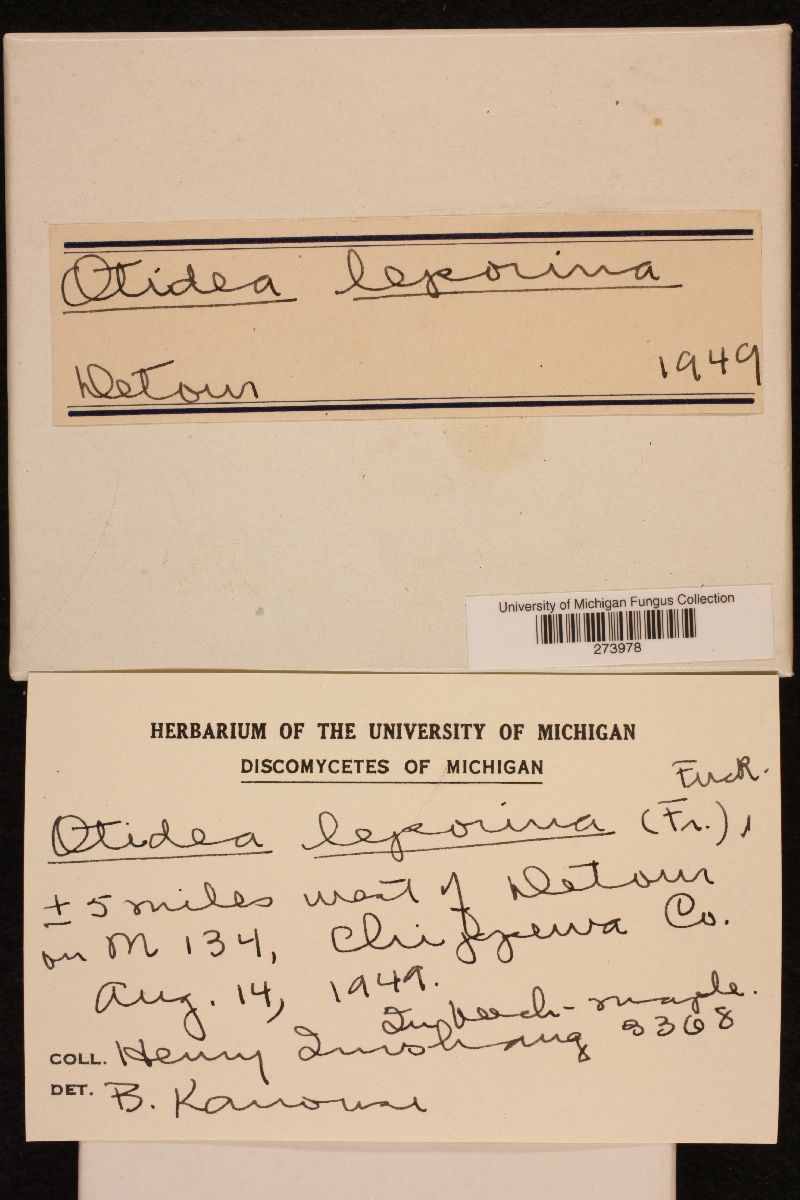 Otidea leporina
Detour 1949
University of Michigan Fungus Collection
273978
HERBARIUM OF THE UNIVERSITY OF MICHIGAN
DISCOMYCETES OF MICHIGAN
Fuck.
Otidea leporina (Fr.),
± 5 miles west of Detour
on M 134, Chippewa Co.
Aug. 14, 1949.
In beech-maple.
COLL. Henry Imshaug 3368
DET. B. Kanouse